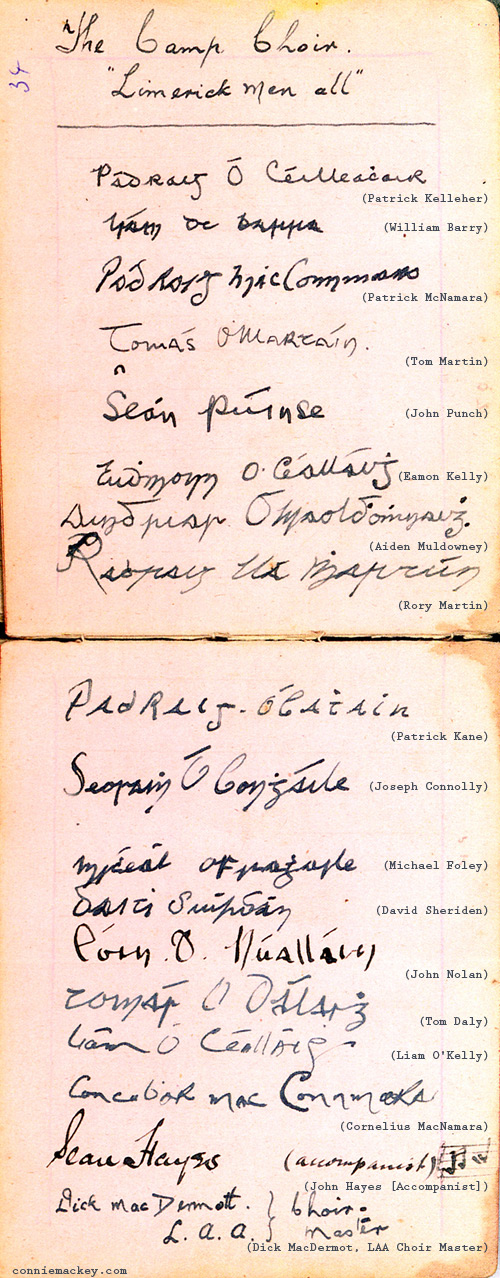 The Camp Choir.
34
"Limerick men all"
Pádraig Ó Céilleacair
(Patrick Kelleher)
Liam de Barra
(William Barry)
Pádraig Mac Conmara
(Patrick McNamara)
Tomás Ó Martain.
(Tom Martin)
Seán Púinse
(John Punch)
Eadmonn O. Ceallaiġ
(Eamon Kelly)
(Aiden Muldowney)
(Rory Martin)
Padraig. Ó Catain
(Patrick Kane)
Seosaiṁ Ó Congaile
(Joseph Connolly)
(Michael Foley)
(David Sheriden)
Eóin. O. Nualláin
(John Nolan)
Tomás Ó Dálaiġ
(Tom Daly)
Liam Ó Ceallaig
(Liam O'Kelly)
Concubor mac Conmara
(Cornelius MacNamara)
Sean Hayes (accompanist)
(John Hayes [Accompanist])
Dick MacDermott. } Choir.
L. A. A. } Master
(Dick MacDermot, LAA Choir Master)
conniemackey.com